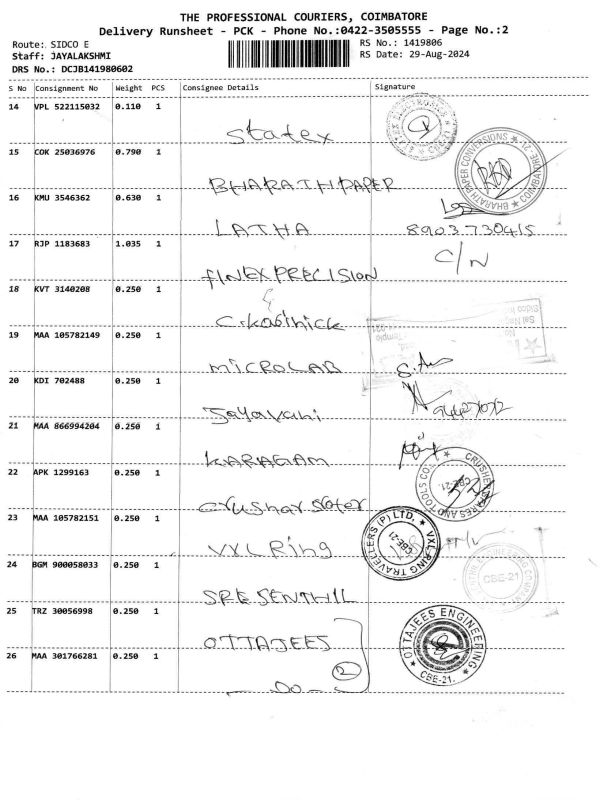 THE PROFESSIONAL COURIERS, COIMBATORE
Delivery Runsheet - PCK - Phone No.:0422-3505555 - Page No.:2
Route: SIDCO E
RS No.: 1419806
Staff: JAYALAKSHMI
RS Date: 29-Aug-2024
DRS No.: DCJB141980602
S No Consignment No Weight PCS Consignee Details Signature
14 VPL 522115032 0.110 1
Statex
15 COK 25036976 0.790 1
BHARATH PAPER
BHARATH PAPER CONVERSIONS ★ COIMBATORE-21
16 KMU 3546362 0.630 1
LATHA 8903730415
17 RJP 1183683 1.035 1
C/N
FINEX PRECISION
18 KVT 3140208 0.250 1
C. Kaarthick
19 MAA 105782149 0.250 1
MICROLAB
20 KDI 702488 0.250 1
Jayavani
21 MAA 866994204 0.250 1
KARAGAM
22 APK 1299163 0.250 1
CBE-21.
23 MAA 105782151 0.250 1
VXL Ring
VXL-RING TRAVELLERS (P) LTD.
CBE-21
24 BGM 900058033 0.250 1
CBE-21
SRE SENTHIL
25 TRZ 30056998 0.250 1
OTTAJEES
OTTAJEES ENGINEERING
CBE-21.
26 MAA 301766281 0.250 1
2
-Do-